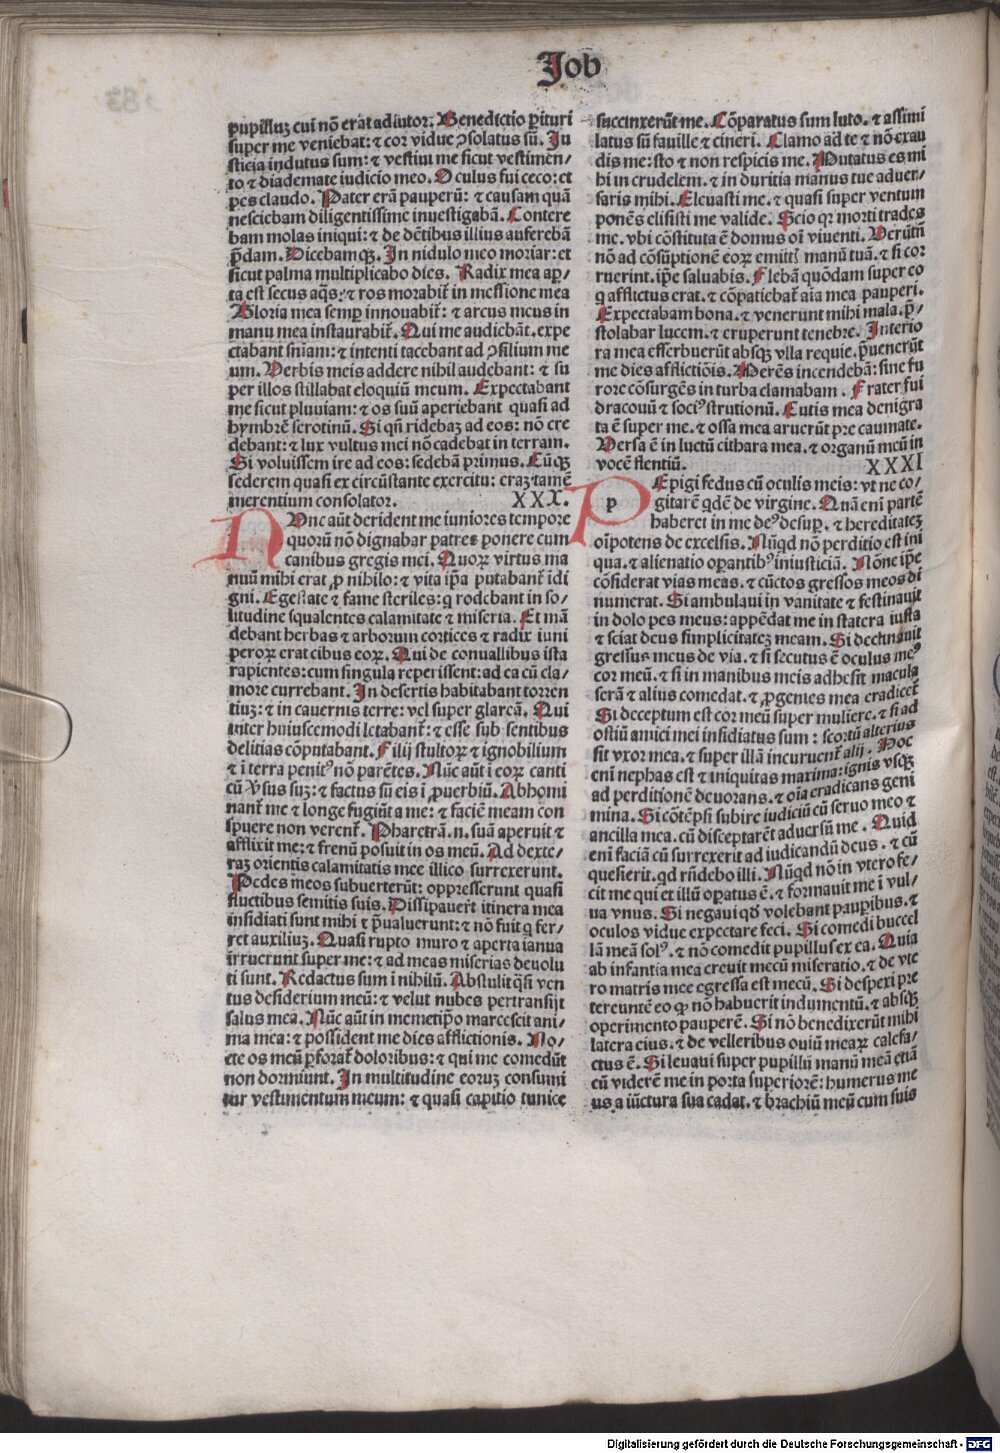 Job
pupilluʒ cui nō erat adiutor. Benedictio ꝑituri
super me veniebat: ⁊ cor vidue ↄsolatus sū. Ju
sticia indutus sum: ⁊ vestiui me sicut vestimen/
to ⁊ diademate iudicio meo. Oculus fui ceco: et
pes claudo. Pater erā pauperū: ⁊ causam quā
nesciebam diligentissime inuestigabā. Contere
bam molas iniqui: ⁊ de dētibus illius auferebā
p̄dam. Dicebamqꝫ. In nidulo meo moriar: et
sicut palma multiplicabo dies. Radix mea aꝑ/
ta est secus aq̄s: ⁊ ros morabit̄ in messione mea
Gloria mea semꝑ innouabit̄: ⁊ arcus meus in
manu mea instaurabit̄. Qui me audiebāt. expe
ctabant sniam: ⁊ intenti tacebant ad ↄsilium me
um. Verbis meis addere nihil audebant: ⁊ su
per illos stillabat eloquiū meum. Expectabant
me sicut pluuiam: ⁊ os suū aperiebant quasi ad
hymbrē serotinū. Si qn̄ ridebaʒ ad eos: nō cre
debant: ⁊ lux vultus mei nō cadebat in terram.
Si voluissem ire ad eos: sedebā primus. Cūqꝫ
sederem quasi ex circūstante exercitu: eraʒ tamē
merentium consolator. XXX.
Vnc aūt derident me iuniores tempore
quorū nō dignabar patres ponere cum
canibus gregis mei. Quoꝝ virtus ma
nuū mihi erat ꝓ nihilo: ⁊ vita ip̄a putabant̄ idi
gni. Egestate ⁊ fame steriles: q̄ rodebant in so/
litudine squalentes calamitate ⁊ miseria. Et mā
debant herbas ⁊ arborum cortices ⁊ radix iuni
peroꝝ erat cibus eoꝝ. Qui de conuallibus ista
rapientes: cum singula reperissent: ad ea cū cla/
more currebant. In desertis habitabant torren
tiuʒ: ⁊ in cauernis terre: vel super glareā. Qui
inter huiuscemodi letabant̄: ⁊ esse sub sentibus
delitias cōputabant. Filij stultoꝝ ⁊ ignobilium
⁊ ī terra penitꝰ nō parētes. Nūc aūt ī eoꝝ canti
cū v̄sus suʒ: ⁊ factus sū eis ī ꝓuerbiū. Abhomi
nant̄ me ⁊ longe fugiūt a me: ⁊ faciē meam con
spuere non verent̄. Pharetrā .n. suā aperuit ⁊
afflixit me: ⁊ frenū posuit in os meū. Ad dexte/
raʒ orientis calamitatis mee illico surrexerunt.
Pedes meos subuerterūt: oppresserunt quasi
fluctibus semitis suis. Dissipauer̄t itinera mea
insidiati sunt mihi ⁊ p̄ualuerunt: ⁊ nō fuit q̄ fer/
ret auxiliuʒ. Quasi rupto muro ⁊ aperta ianua
irruerunt super me: ⁊ ad meas miserias deuolu
ti sunt. Redactus sum ī nihilū. Abstulit q̄si ven
tus desiderium meū: ⁊ velut nubes pertransijt
salus mea. Nūc aūt in memetip̄o marcescit ani/
ma mea: ⁊ possident me dies afflictionis. No/
cte os meū ꝑforat̄ doloribus: ⁊ qui me comedūt
non dormiunt. In multitudine eoruʒ consumi
tur vestimentum meum: ⁊ quasi capitio tunice
succinxerūt me. Cōparatus sum luto. ⁊ assimi
latus sū fauille ⁊ cineri. Clamo ad te ⁊ nō exau
dis me: sto ⁊ non respicis me. Mutatus es mi
hi in crudelem. ⁊ in duritia manus tue aduer/
saris mihi. Eleuasti me. ⁊ quasi super ventum
ponēs elisisti me valide. Scio qꝛ morti trades
me. vbi cōstituta ē domus oī viuenti. Verūtn̄
nō ad cōsūptionē eoꝝ emittꝭ manū tuā. ⁊ si cor
ruerint. ip̄e saluabis. Flebā quōdam super eo
q̄ afflictus erat. ⁊ cōpatiebat̄ aīa mea pauperi.
Expectabam bona. ⁊ venerunt mihi mala. p̄/
stolabar lucem. ⁊ eruperunt tenebre. Interio
ra mea efferbuerūt absqꝫ vlla requie. p̄uenerūt
me dies afflictiōis. Merēs incendebā: sine fu
rore cōsurgēs in turba clamabam. Frater fui
dracouū ⁊ sociꝰ strutionū. Cutis mea denigra
ta ē super me. ⁊ ossa mea aruerūt pre caumate.
Versa ē in luctū cithara mea. ⁊ organū meū in
vocē flentiū. XXXI
p Epigi fedus cū oculis meis: vt ne co/
gitarē qdē de virgine. Quā enī partē
haberet in me deꝰ desuꝑ. ⁊ hereditateʒ
oīpotens de excelsis. Nūqd nō perditio est ini
qua. ⁊ alienatio oꝑantibꝰ iniusticiā. Nōne ip̄e
cōsiderat vias meas. ⁊ cūctos gressos meos di
numerat. Si ambulaui in vanitate ⁊ festinauit
in dolo pes meus: appēdat me in statera iusta
⁊ sciat deus simplicitateʒ meam. Si declinauit
gressus meus de via. ⁊ si secutus ē oculus meꝰ
cor meū. ⁊ si in manibus meis adhesit macula
serā ⁊ alius comedat. ⁊ ꝓgenies mea eradicet̄
Si deceptum est cor meū super muliere. ⁊ si ad
ostiū amici mei insidiatus sum: scortū alterius
sit vxor mea. ⁊ super illā incuruent̄ alij. Hoc
enī nephas est ⁊ iniquitas maxima: ignis vsqꝫ
ad perditionē deuorans. ⁊ oīa eradicans geni
mina. Si cōtēpsi subire iudiciū cū seruo meo ⁊
ancilla mea. cū disceptarēt aduersū me. Quid
enī faciā cū surrexerit ad iudicandū deus. ⁊ cū
quesierit. qd rn̄debo illi. Nūqd nō in vtero fe/
cit me qui et illū oꝑatus ē. ⁊ formauit me ī vul/
ua vnus. Si negaui qd̄ volebant pauꝑibus. ⁊
oculos vidue expectare feci. Si comedi buccel
lā meā solꝰ. ⁊ nō comedit pupillus ex ea. Quia
ab infantia mea creuit mecū miseratio. ⁊ de vte
ro matris mee egressa est mecū. Si despexi pre
tereuntē eo ꝙ nō habuerit indumentū. ⁊ absqꝫ
operimento pauperē. Si nō benedixerūt mihi
latera eius. ⁊ de velleribus ouiū meaꝝ calefa/
ctus ē. Si leuaui super pupillū manū meā etiā
cū viderē me in porta superiorē: humerus me
us a iūctura sua cadat. ⁊ brachiū meū cum suis
Digitalisierung gefördert durch die Deutsche Forschungsgemeinschaft - DFG